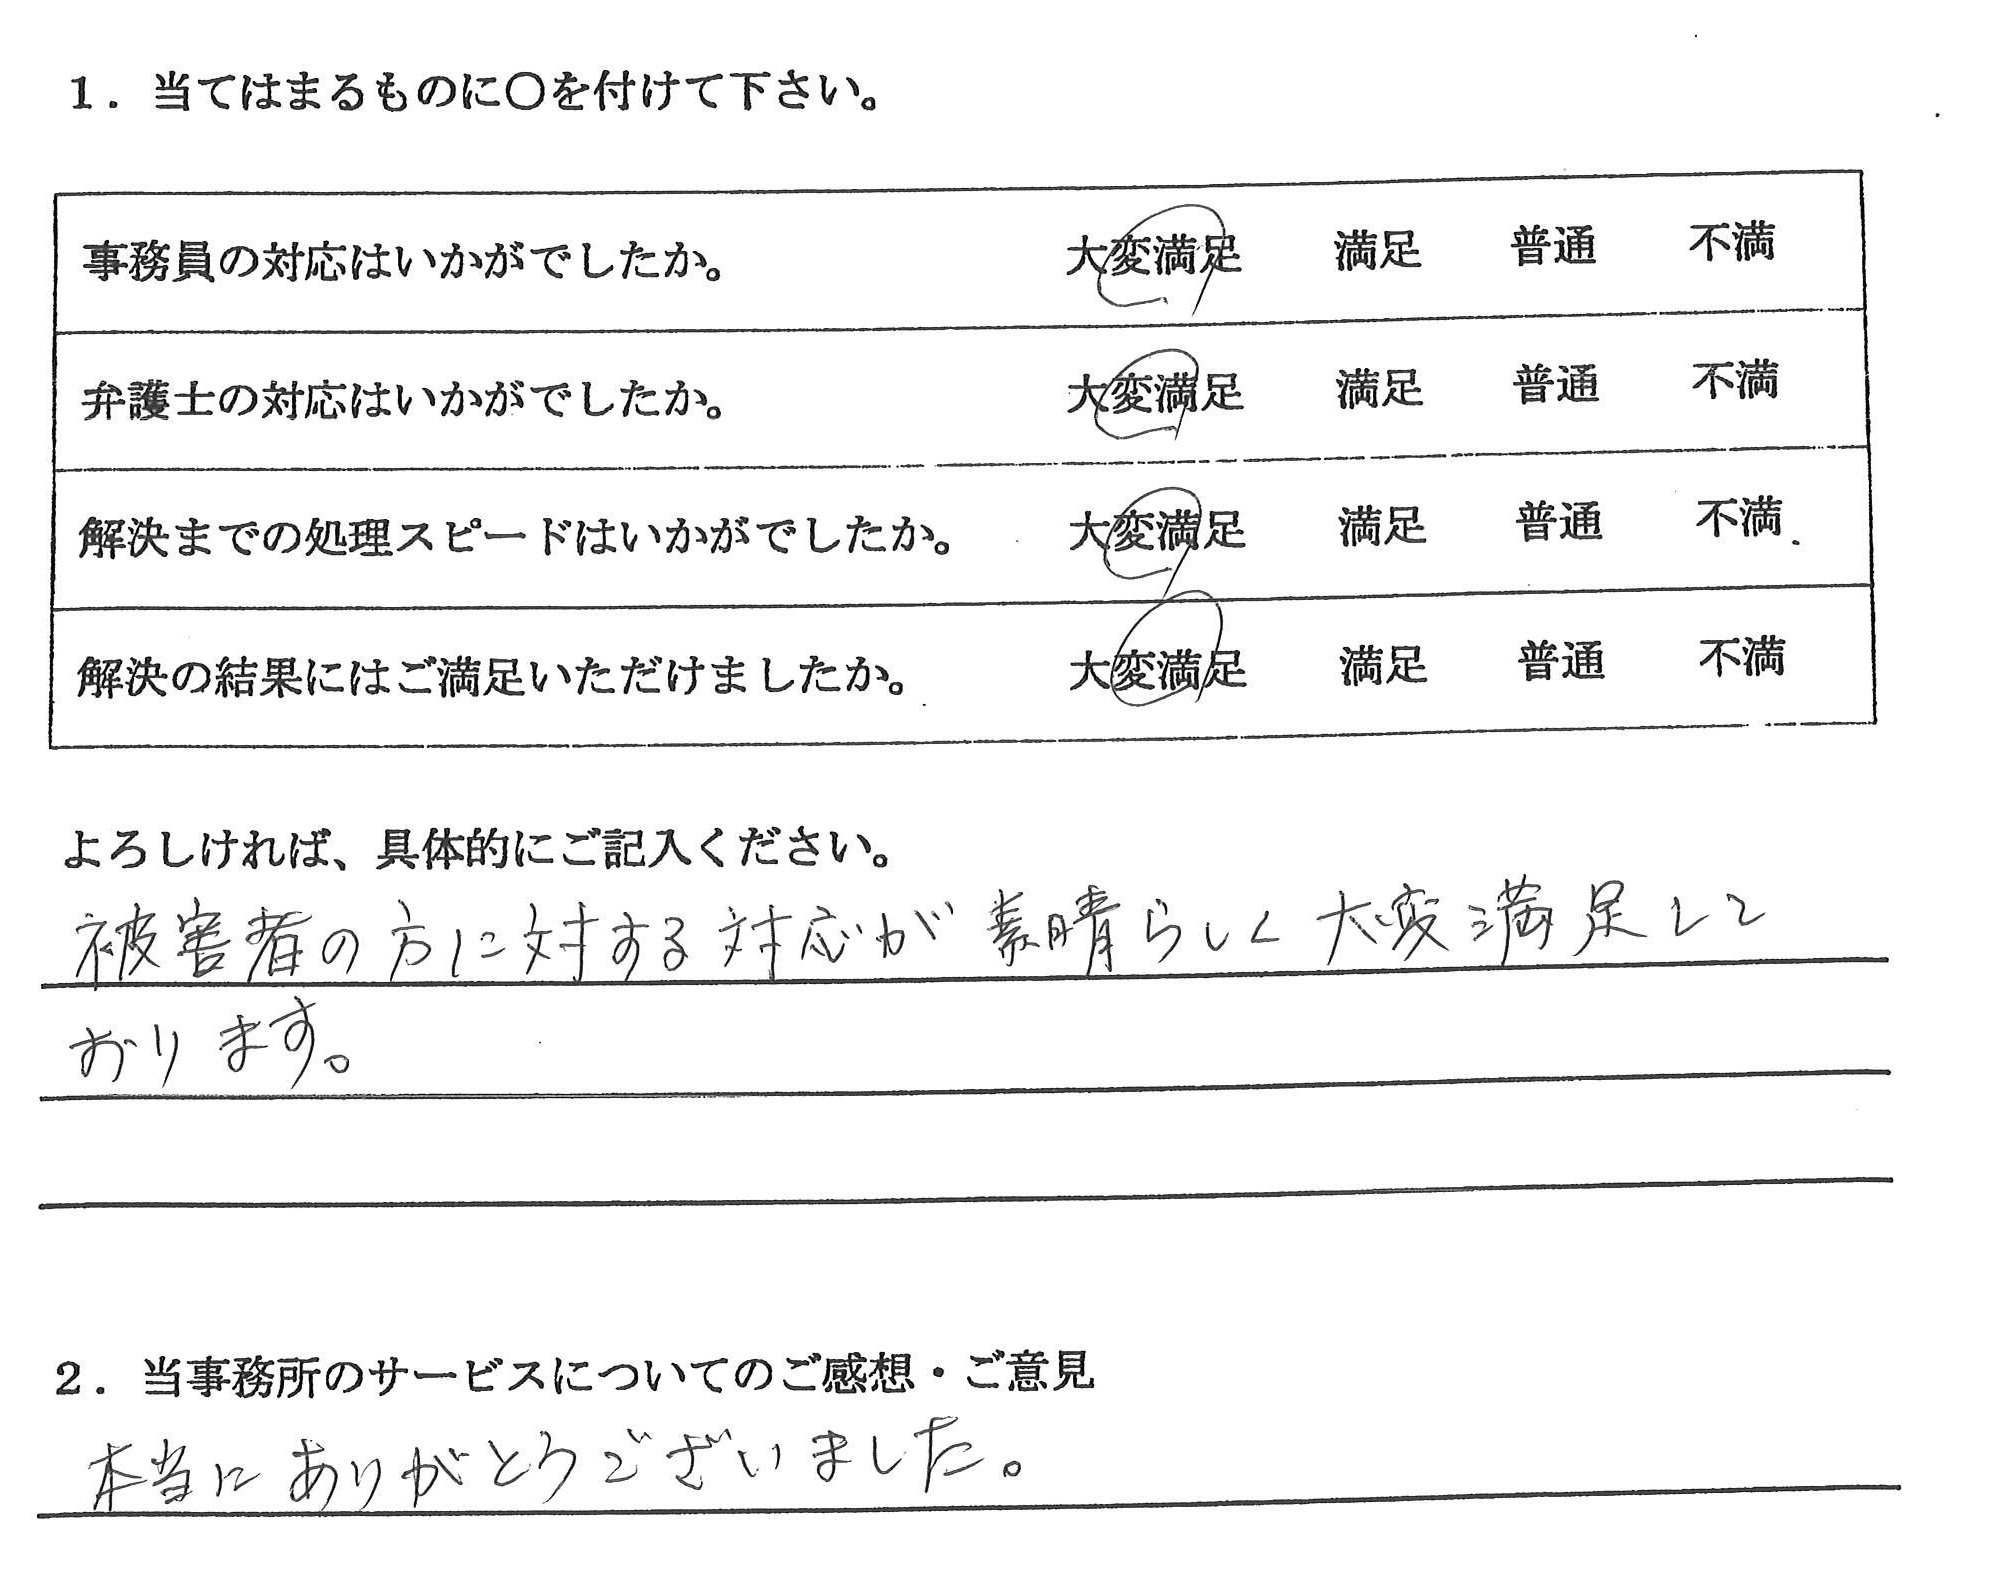 1．当てはまるものに〇を付けて下さい。
事務員の対応はいかがでしたか。 大変満足 満足 普通 不満
弁護士の対応はいかがでしたか。 大変満足 満足 普通 不満
解決までの処理スピードはいかがでしたか。 大変満足 満足 普通 不満
解決の結果にはご満足いただけましたか。 大変満足 満足 普通 不満
よろしければ、具体的にご記入ください。
被害者の方に対する対応が素晴らしく大変満足して
おります。
2．当事務所のサービスについてのご感想・ご意見
本当にありがとうございました。